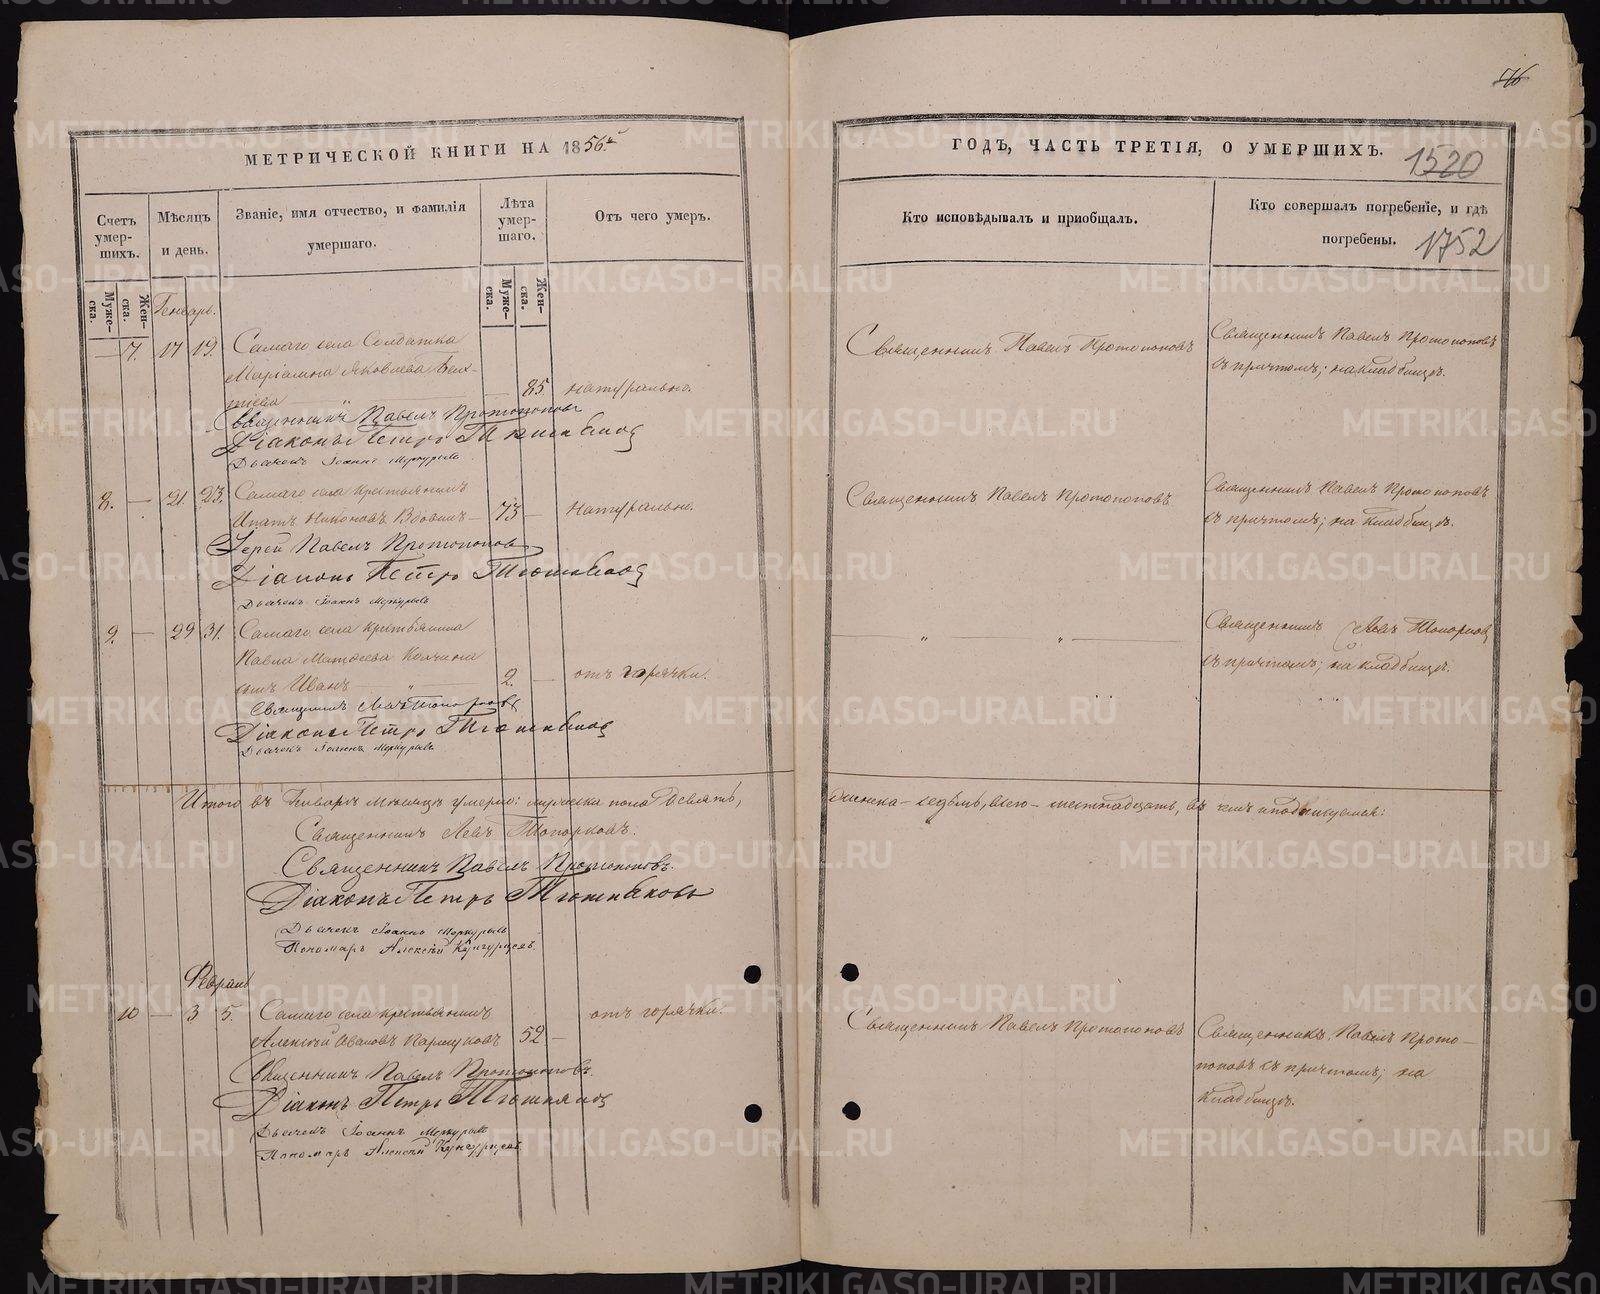 56
МЕТРИЧЕСКОЙ КНИГИ НА 1856й
ГОДЪ, ЧАСТЬ ТРЕТІЯ, О УМЕРШИХЪ.
1520
Счетъ умер-шихъ.
Муже-ска.
Жен-ска.
Мѣсяцъ и день.
Званіе, имя отчество, и фамилія умершаго.
Лѣта умер-шаго.
Муже-ска.
Жен-ска.
Отъ чего умеръ.
Кто исповѣдывалъ и пріобщалъ.
Кто совершалъ погребеніе, и гдѣ погребены.
1752
Генварь.
— 7. 17 19. Самаго села Солдатка
Маріамна Яковлева
— 85. натурально.
Священникъ Павелъ Протопоповъ
Священникъ Павелъ Протопоповъ
съ причтомъ; на кладбищѣ.
Священникъ Павелъ Протопоповъ
Діаконъ Петръ
Дьячекъ Іоаннъ Меркурьевъ
8. — 21. 23. Самаго села крестьянинъ
Ипатъ Никоновъ Вдовинъ — 73 — натурально.
Священникъ Павелъ Протопоповъ
Священникъ Павелъ Протопоповъ
съ причтомъ; на кладбищѣ.
Іерей Павелъ Протопоповъ
Діаконъ Петръ
Дьячекъ Іоаннъ Меркурьевъ
9. — 29 31. Самаго села крестьянина
Павла Матѳеева Колчина
сынъ Иванъ — „ — 2. — отъ горячки.
— „ „ —
Священникъ Левъ Топорковъ
съ причтомъ; на кладбищѣ.
Священникъ Левъ Топорковъ
Діаконъ Петръ
Дьячекъ Іоаннъ Меркурьевъ
Итого въ Генварѣ мѣсяцѣ умерло: мужеска пола девять,
женска — седьмъ, всего — шестнадцать, въ чемъ и подписуемся:
Священникъ Левъ Топорковъ.
Священникъ Павелъ Протопоповъ.
Діаконъ Петръ
Дьячекъ Іоаннъ Меркурьевъ
Пономарь Алексѣй
Февраль
10 — 3 5. Самаго села крестьянинъ
Алексѣй Ивановъ Паршуковъ 52 — отъ горячки.
Священникъ Павелъ Протопоповъ
Священникъ Павелъ Прото-
поповъ съ причтомъ; на
кладбищѣ.
Священникъ Павелъ Протопоповъ.
Діаконъ Петръ
Дьячекъ Іоаннъ Меркурьевъ
Пономарь Алексѣй
METRIKI.GASO-URAL.RU